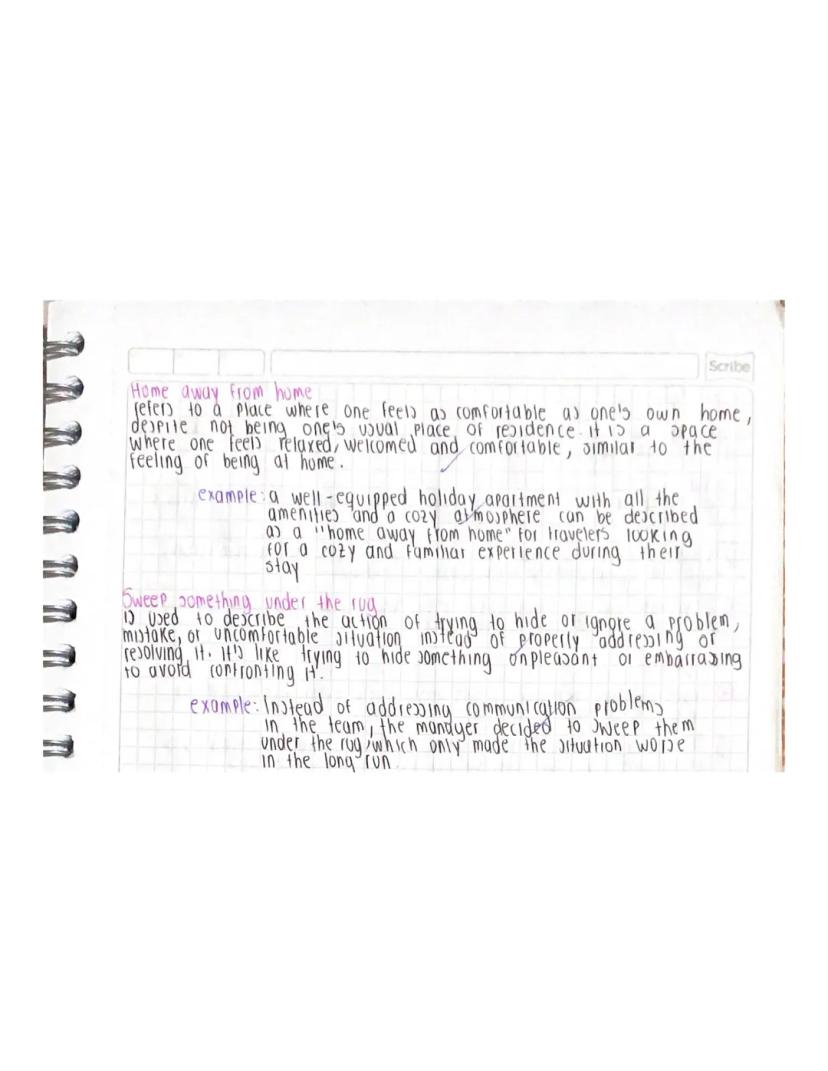 Scribe
Home away from home
refers to a place where one feels as comfortable as one's own home,
despite not being one's usual place of residence. it is a space
where one feels relaxed, welcomed and comfortable, similar to the
feeling of being at home.
example: a well-equipped holiday apartment with all the
amenities and a cozy atmosphere can be described
as a "home away from home" for travelers looking
for a cozy and familiar experience during their
stay
Sweep something under the rug
is used to describe the action of trying to hide or ignore a problem,
mistake, or uncomfortable situation instead of properly addressing or
resolving it. it's like trying to hide something unpleasant or embarrassing
to avoid confronting it.
example: Instead of addressing communication problems
in the team, the manager decided to sweep them
under the rug, which only made the situation worse
in the long run.